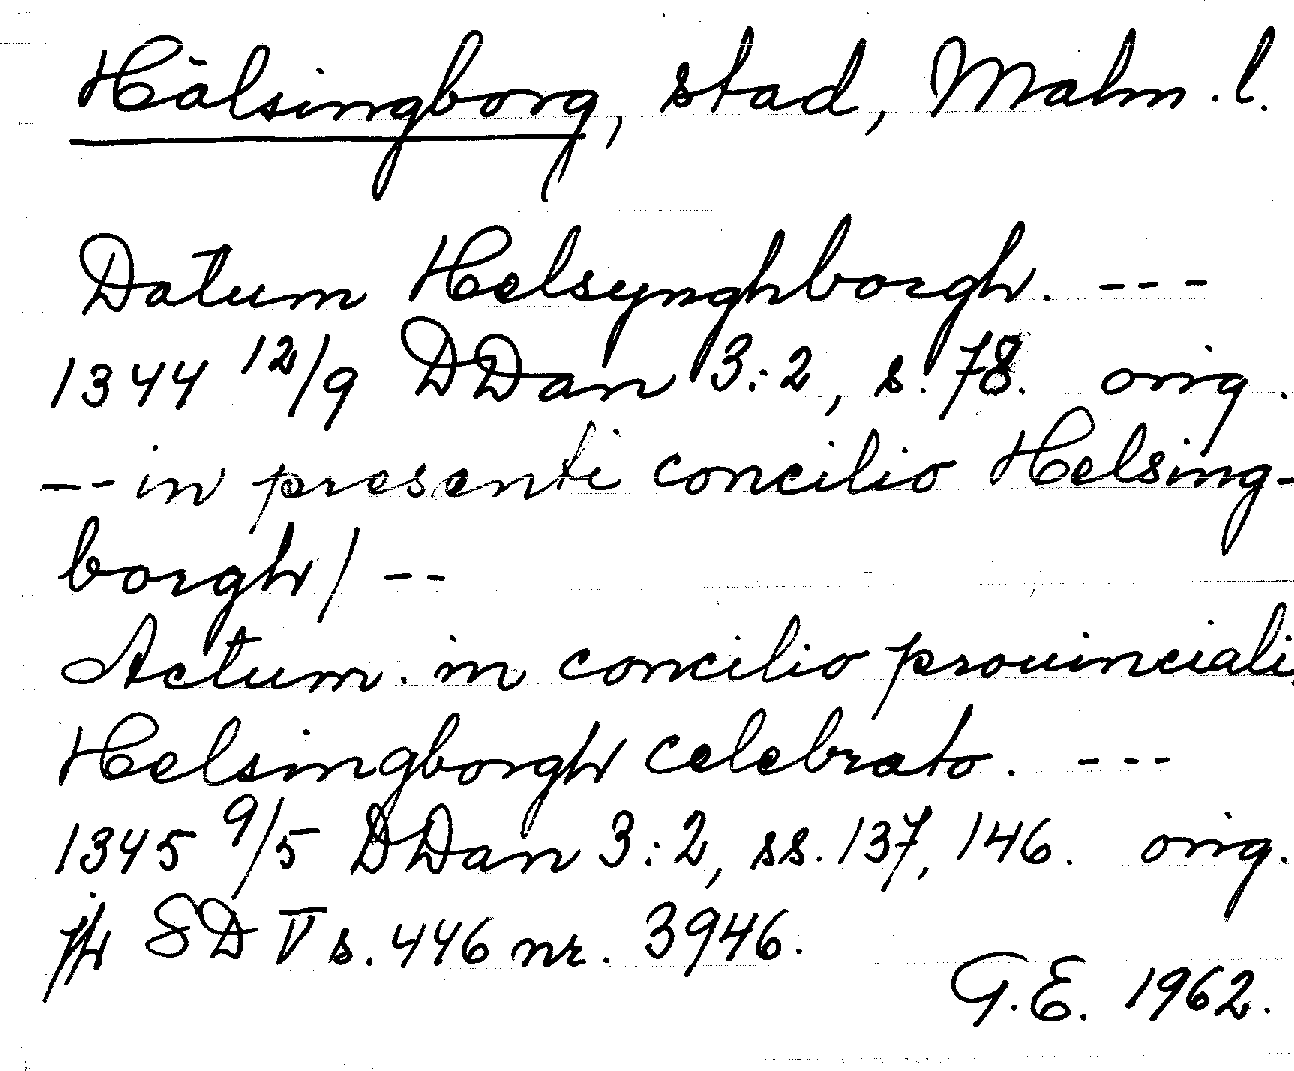 Hälsingborg, stad, Malm. l.
Datum Helsynghborgh. ---
1344 12/9 DDan 3:2, s. 78. orig.
-- in presenti concilio Helsing-
borgh/ --
Actum in concilio prouinciali,
Helsingborgh celebrato. ---
1345 9/5 DDan 3:2, ss. 137, 146. orig.
jfr SD V s. 446 nr. 3946.
G.E. 1962.